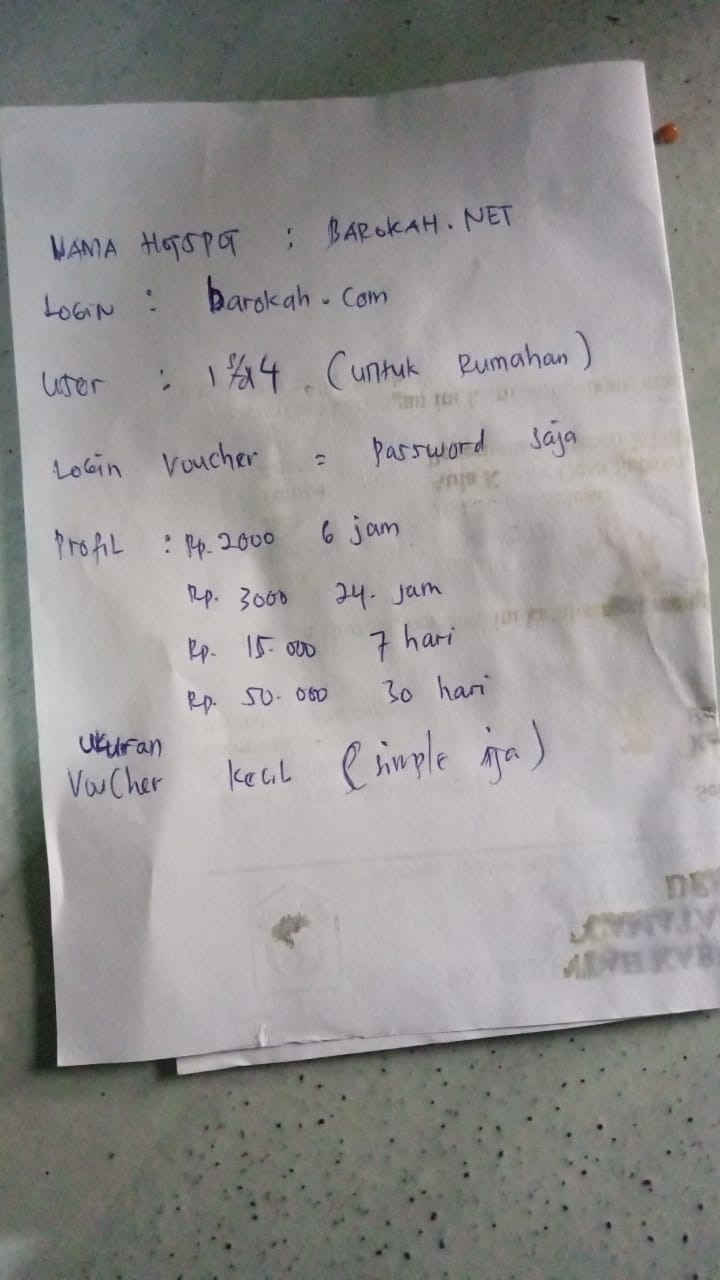 NAMA HOTSPOT : BAROKAH. NET
LOGIN : barokah. com
User : 1 s/d 4. (untuk Rumahan)
LOGIN Voucher = Password saja
Profil : Rp. 2000 6 jam
Rp. 3000 24. jam
Rp. 15.000 7 hari
Rp. 50.000 30 hari
Ukuran
Voucher Kecil (simple aja)